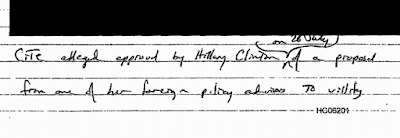 on 28 July
CITE alleged approval by Hillary Clinton of a proposal
from one of her foreign policy advisors to vilify
HC06201